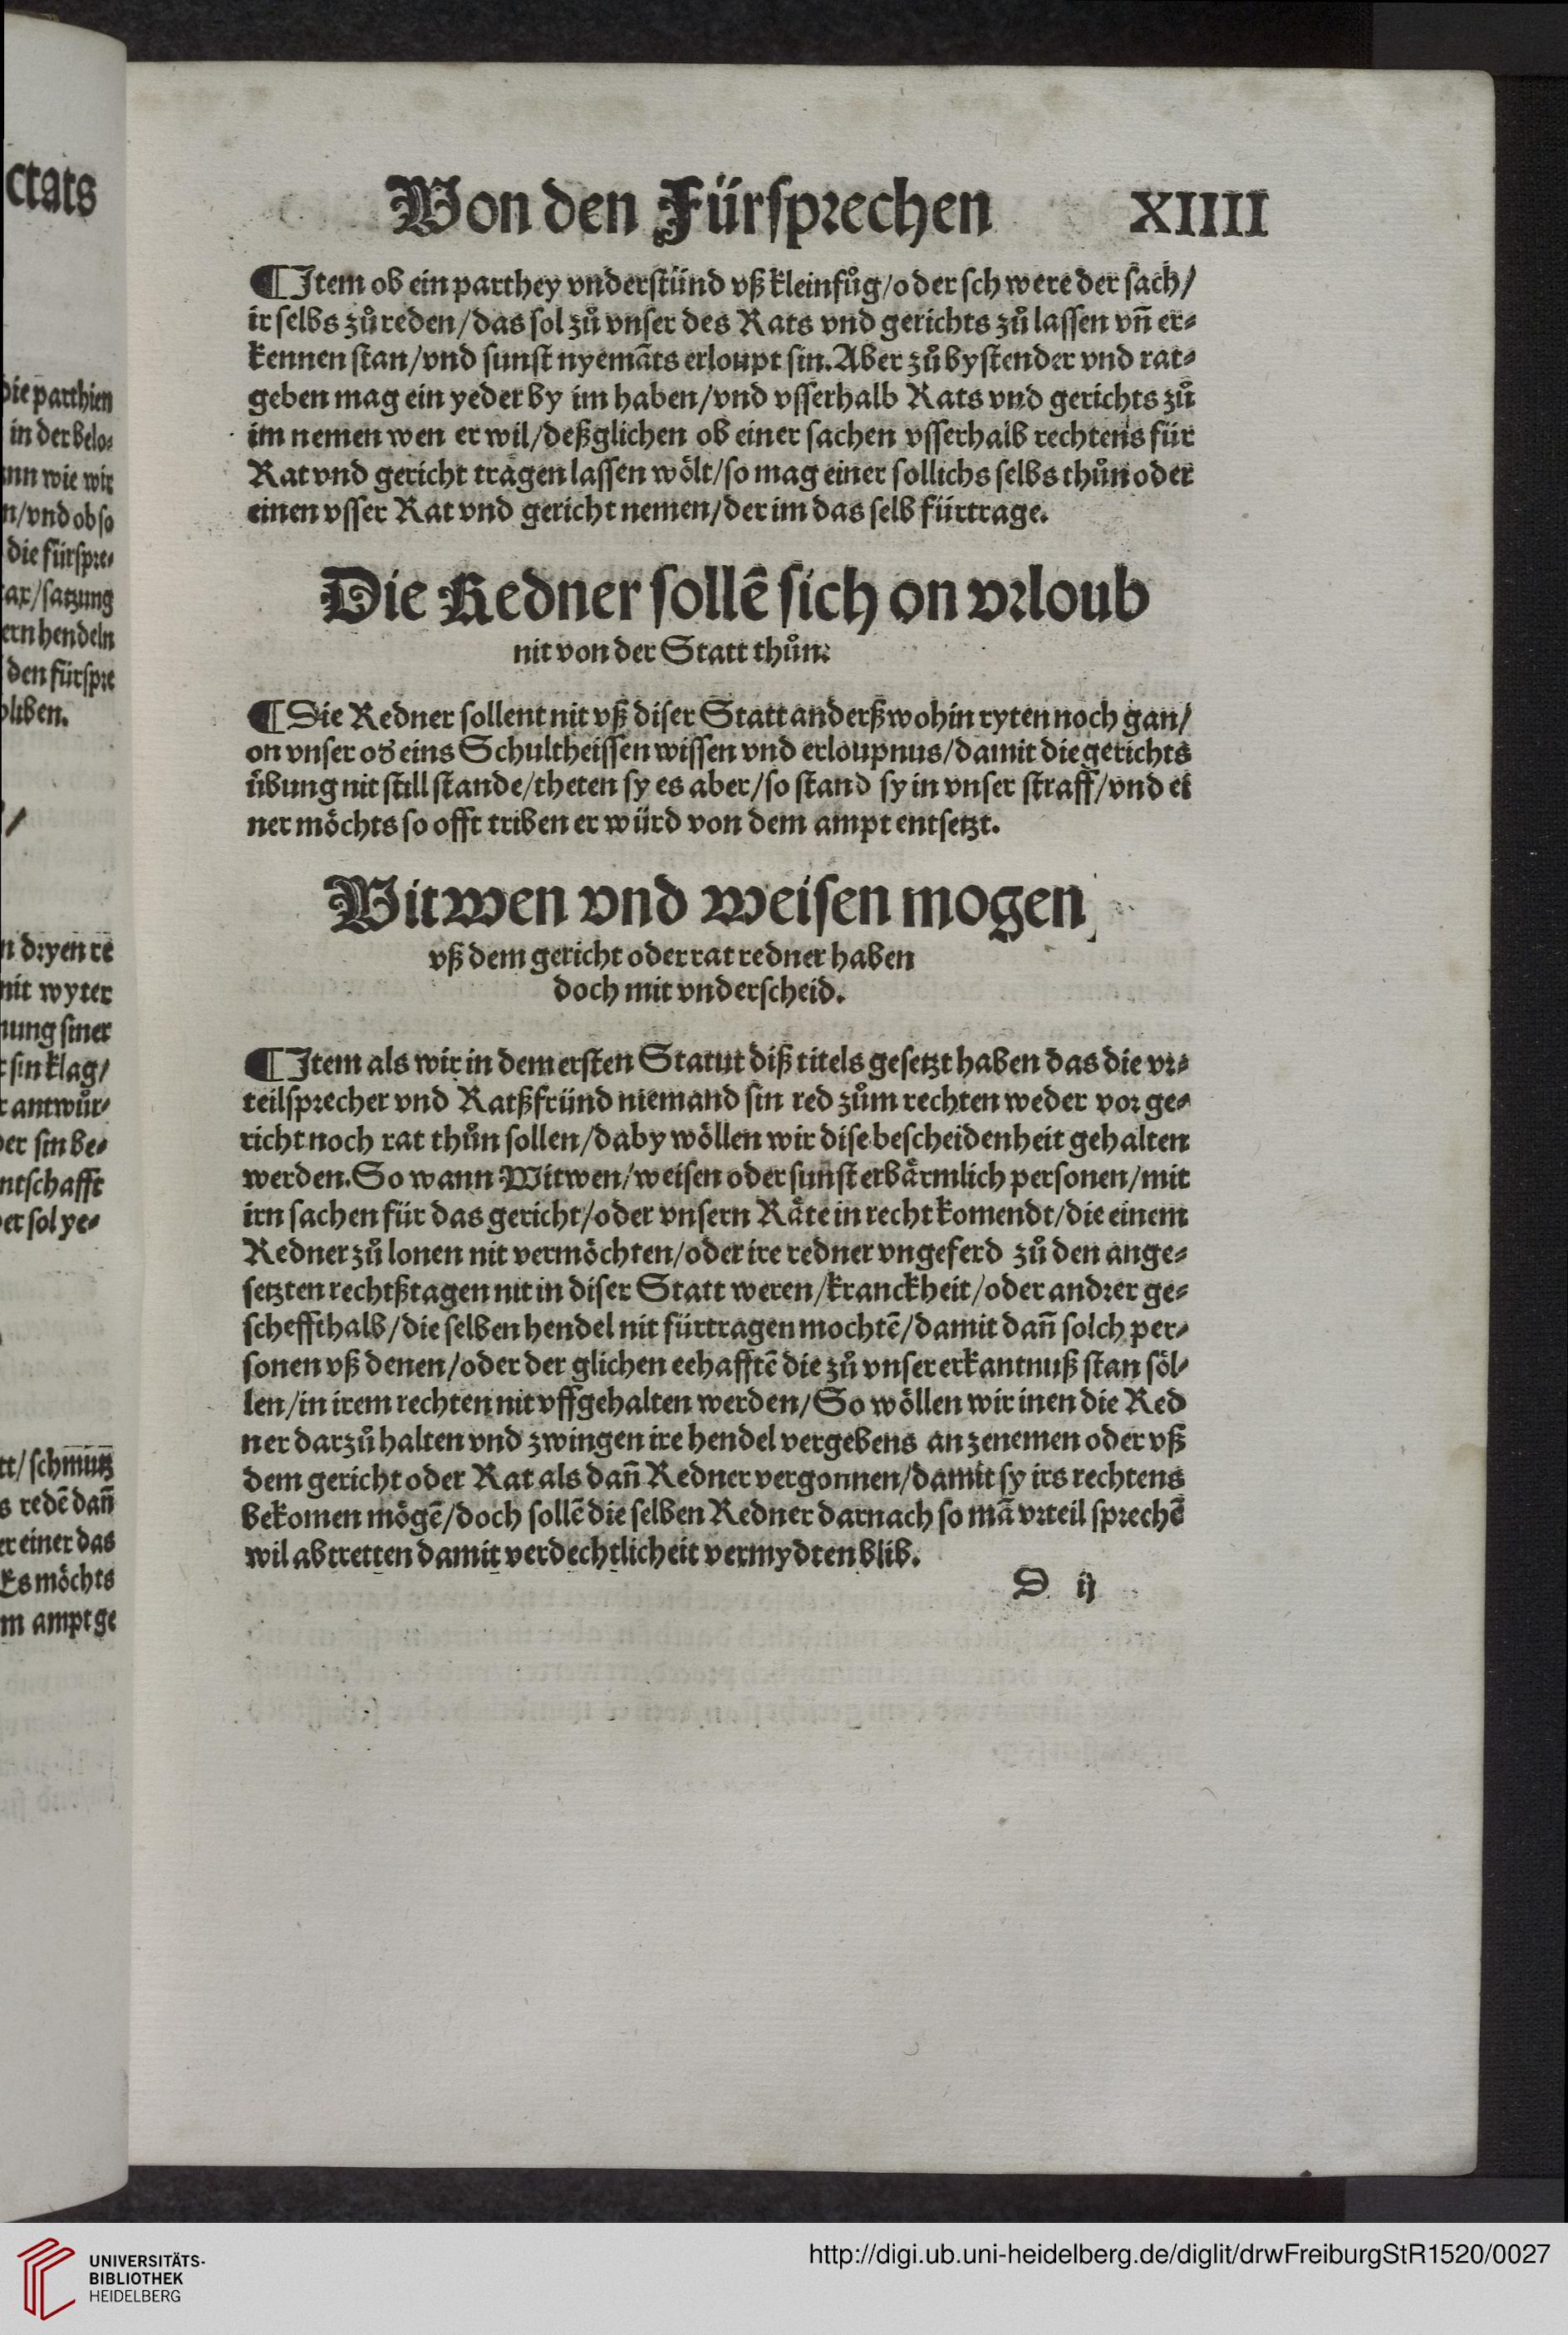 Von den Fürsprechen XIIII
¶ Item ob ein parthey vnderstünd vß kleinfůg/oder schwere der sach/
ir selbs zů reden/das sol zů vnser des Rats vnd gerichts zů lassen vn̄ er⸗
kennen stan/vnd sunst nyemāts erloupt sin. Aber zů bystender vnd rat⸗
geben mag ein yeder by im haben/vnd vsserhalb Rats vnd gerichts zů
im nemen wen er wil/deßglichen ob einer sachen vsserhalb rechtens für
Rat vnd gericht tragen lassen wölt/so mag einer sollichs selbs thůn oder
einen vsser Rat vnd gericht nemen/der im das selb fürtrage.
Die Redner sollē sich on vrloub
nit von der Statt thůn.
¶ Die Redner sollent nit vß diser Statt anderßwohin ryten noch gan/
on vnser od eins Schultheissen wissen vnd erloupnus/damit die gerichts
übung nit still stande/theten sy es aber/so stand sy in vnser straff/vnd ei
ner möchts so offt triben er würd von dem ampt entsetzt.
Witwen vnd weisen mogen
vß dem gericht oder rat redner haben
doch mit vnderscheid.
¶ Item als wir in dem ersten Statut diß titels gesetzt haben das die vr⸗
teilsprecher vnd Ratßfründ niemand sin red zům rechten weder vor ge⸗
richt noch rat thůn sollen/daby wöllen wir dise bescheidenheit gehalten
werden. So wann Witwen/weisen oder sunst erbärmlich personen/mit
irn sachen für das gericht/oder vnsern Räte in recht komendt/die einem
Redner zů lonen nit vermöchten/oder ire redner vngeferd zů den ange⸗
setzten rechtßtagen nit in diser Statt weren/kranckheit/oder andrer ge⸗
scheffthalb/die selben hendel nit fürtragen mochtē/damit dan̄ solch per⸗
sonen vß denen/oder der glichen eehafftē die zů vnser erkantnuß stan söl⸗
len/in irem rechten nit vffgehalten werden/So wöllen wir inen die Red
ner darzů halten vnd zwingen ire hendel vergebens an zenemen oder vß
dem gericht oder Rat als dan̄ Redner vergonnen/damit sy irs rechtens
bekomen mögē/doch sollē die selben Redner darnach so mā vrteil sprechē
wil abtretten damit verdechtlicheit vermydten blib.
D ij
ctats
die parthien
in der belo⸗
ann wie wir
n/vnd ob so
die fürspre⸗
tax/satzung
ern hendeln
den fürspre
bliben.
n dryen re
nit wyter
nung siner
t sin klag/
r antwůr⸗
der sin be⸗
ntschafft
er sol ye⸗
tt/schmutz
s redē dan̄
er einer das
Es möchts
m ampt ge
UNIVERSITÄTS-
BIBLIOTHEK
HEIDELBERG
http://digi.ub.uni-heidelberg.de/diglit/drwFreiburgStR1520/0027